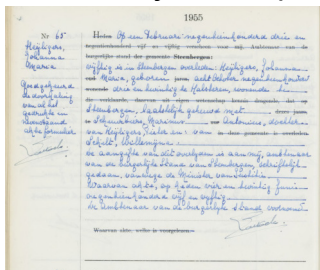 1955
Nr 65
Heijligers,
Johanna
Maria
Goedgekeurd
de doorhaling
van al het
gedrukte in
bovenstaand
akte formulier
Heden Op een Februari negentienhonderd drie en
negentienhonderd vijf en vijftig verscheen voor mij, Ambtenaar van de
burgerlijke stand der gemeente Steenbergen:
vijftig is en Steenbergen overleden Heijligers, Johanna,
oud Maria, geboren jaren, acht October negentienhonderd
wonende drie en twintig te Halsteren, wonende te
die verklaarde, daarvan uit eigen wetenschap kennis dragende, dat op
Steenbergen, laatstelijk gehuwd met dezes jaars
te Schoenmakers, Marinus Antonius, dochter
van Heijligers, Pieter en van in deze gemeente is overleden
Schelt, Willemijna.
De aangifte van dit overlijden is aan mij, ambtenaar
van de burgerlijke stand van Steenbergen, schriftelijk
gedaan, vanwege de Minister van Justitie.
Waarvan akte, op heden vier en twintig Juni
negentienhonderd vijf en vijftig.
De ambtenaar van de burgerlijke stand voornoemd.
Waarvan akte, welke is voorgelezen.